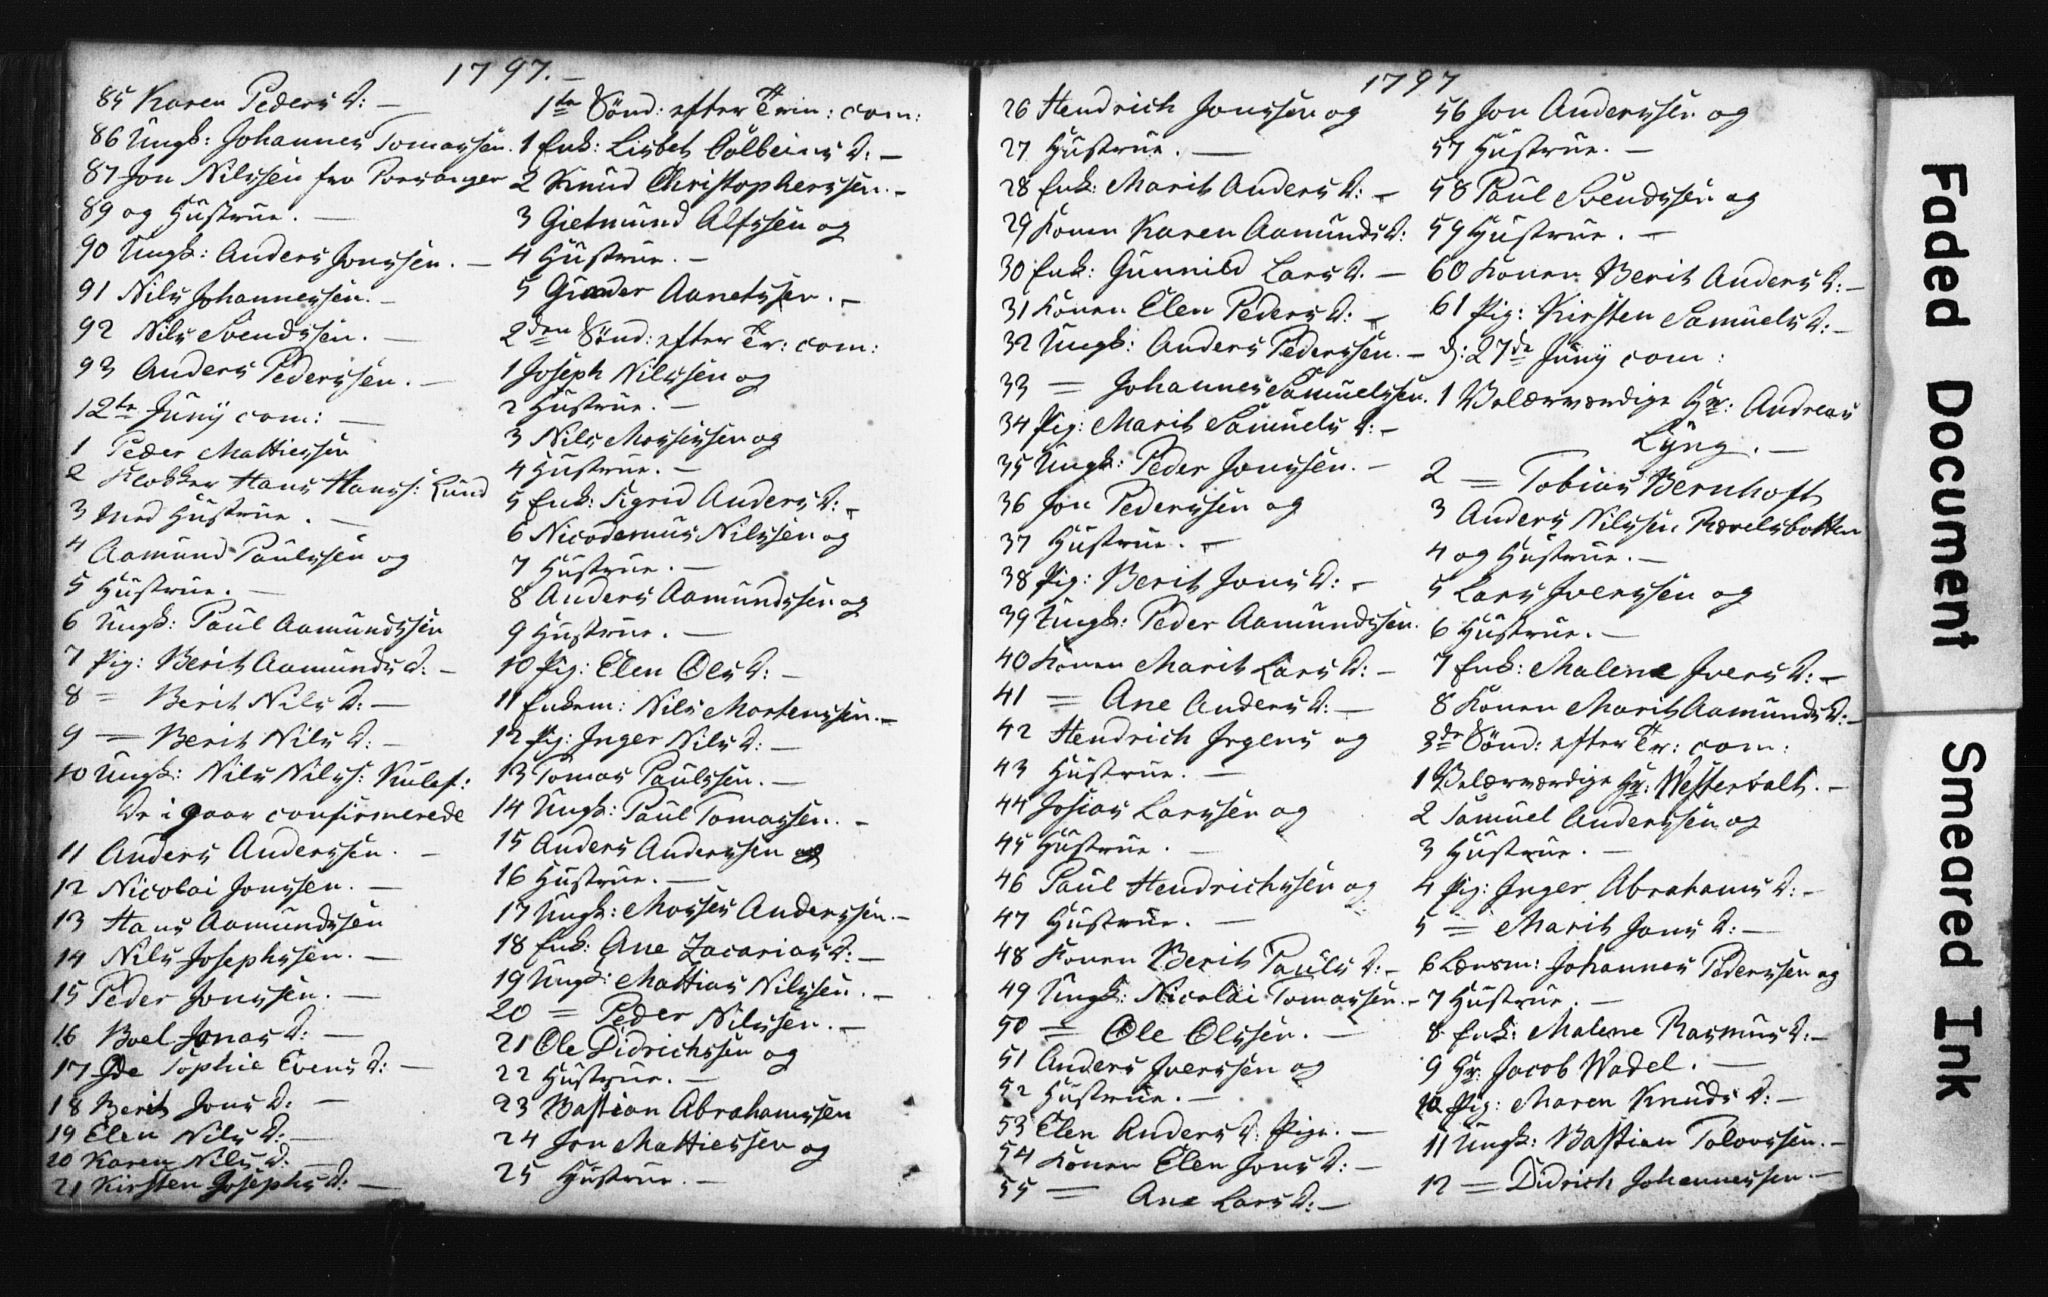 1797.-
85 Karen Peders D: -
86 Ungk: Johannes Tomassen.
87 Jon Nilssen fra Porsanger
89 og Hustrue. -
90 Ungk: Anders Jonssen. -
91 Nils Johannessen. -
92 Nils Svendssen. -
93 Anders Pederssen. -
12te Junÿ com: -
1 Peder Mattiessen
2 Klokker Hans Hanss: Lund
3 Med Hustrue. -
4 Aamund Paulssen og
5 Hustrue. -
6 Ungk: Paul Aamundssen
7 Pig: Berit Aamunds D: -
8 = Berit Nils D: -
9 = Berit Nils D: -
10 Ungk: Nils Nilss:
De i gaar confirmerede
11 Anders Anderssen. -
12 Nicolai Jonssen. -
13 Hans Aamundssen
14 Nils Josephssen. -
15 Peder Jonssen. -
16 Boel Jonas D: -
17 Ide Sophie Evens D: -
18 Berit Jons D: -
19 Elen Nils D: -
20 Karen Nils D: -
21 Kirsten Josephs D: -
1te Sönd: efter Trin: com:
1 Enk: Lisbet Colbeins D: -
2 Knud Christopherssen. -
3 Gietmund Alfssen og
4 Hustrue. -
5 Gunder Aanetssen. -
2den Sönd: efter Tr: com:
1 Joseph Nilssen og
2 Hustrue. -
3 Nils Mossessen og
4 Hustrue. -
5 Enk: Sigrid Anders D: -
6 Nicodemus Nilssen og
7 Hustrue. -
8 Anders Aamundssen og
9 Hustrue. -
10 Pig: Elen Ols D: -
11 Enkem: Nils Mortenssen. -
12 Pig: Inger Nils D: -
13 Tomas Paulssen. -
14 Ungk: Paul Tomassen. -
15 Anders Anderssen og
16 Hustrue. -
17 Ungk: Mosses Anderssen. -
18 Enk: Ane Zacarias D: -
19 Ungk: Mattias Nilssen. -
20 = Peder Nilssen. -
21 Ole Didrichssen og
22 Hustrue. -
23 Bastian Abrahamssen
24 Jon Mattiessen og
25 Hustrue. -
1797
26 Hendrich Jonssen og
27 Hustrue. -
28 Enk: Marit Anders D: -
29 Konen Karen Aamunds D:
30 Enk: Gunnild Lars D. -
31 Konen Elen Peders D: -
32 Ungk: Anders Pederssen. -
33 = Johannes Samuelssen.
34 Pig: Marit Samuels D: -
35 Ungk: Peder Jonssen. -
36 Jon Pederssen og
37 Hustrue. -
38 Pig: Berit Jons D: -
39 Ungk: Peder Aamundssen.
40 Konen Marit Lars D: -
41 = Ane Anders D: -
42 Hendrich Irgens og
43 Hustrue. -
44 Josias Larssen og
45 Hustrue. -
46 Paul Hendrichssen og
47 Hustrue. -
48 Konen Berit Pauls D: -
49 Ungk: Nicolai Tomassen. -
50 = Ole Olssen. -
51 Anders Iverssen og
52 Hustrue. -
53 Elen Anders D: Pige. -
54 Konen Elen Jons D: -
55 = Ane Lars D: -
56 Jon Anderssen og
57 Hustrue. -
58 Paul Svendssen og
59 Hustrue. -
60 Konen Berit Anders D: -
61 Pig: Kirsten Samuels D: -
d: 27de Junÿ com:
1 Velærværdige Hr: Andreas
Lÿng. -
2 = Tobias Bernhoft
3 Anders Nilssen
4 og Hustrue. -
5 Lars Iverssen og
6 Hustrue. -
7 Enk: Malene Ivers D: -
8 Konen Marit Aamunds D: -
3de Sönd: efter Tr: com:
1 Velærværdige Hr: Westervalt. -
2 Samuel Anderssen og
3 Hustrue. -
4 Pig: Inger Abrahams D: -
5 = Marit Jons D: -
6 Lænsm: Johannes Pederssen og
7 Hustrue. -
8 Enk: Malene Rasmus D: -
9 Hr: Jacob Wadel. -
10 Pig: Maren Knuds D: -
11 Ungk: Bastian Tolovssen. -
12 = Didrich Johannessen. -
Faded Document Smeared Ink